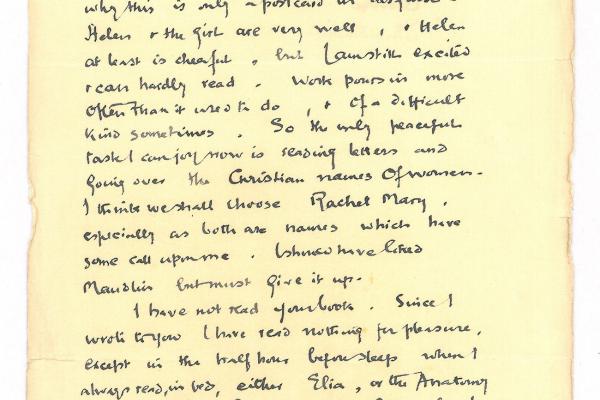 why this is only a postcard in disguise.
Helen & the girl are very well, & Helen
at least is cheerful, but I am still excited
& can hardly read. Work pours in more
often than it used to do, & of a difficult
kind sometimes. So the only peaceful
task I can enjoy now is reading letters and
going over the Christian names of women.
I think we shall choose Rachel Mary,
especially as both are names which have
some call upon me. I should have liked
Maudlin but must give it up.
I have not read your book. Since I
wrote to you I have read nothing for pleasure,
except in the half hour before sleep when I
always read, in bed, either Elia, or the Anatomy